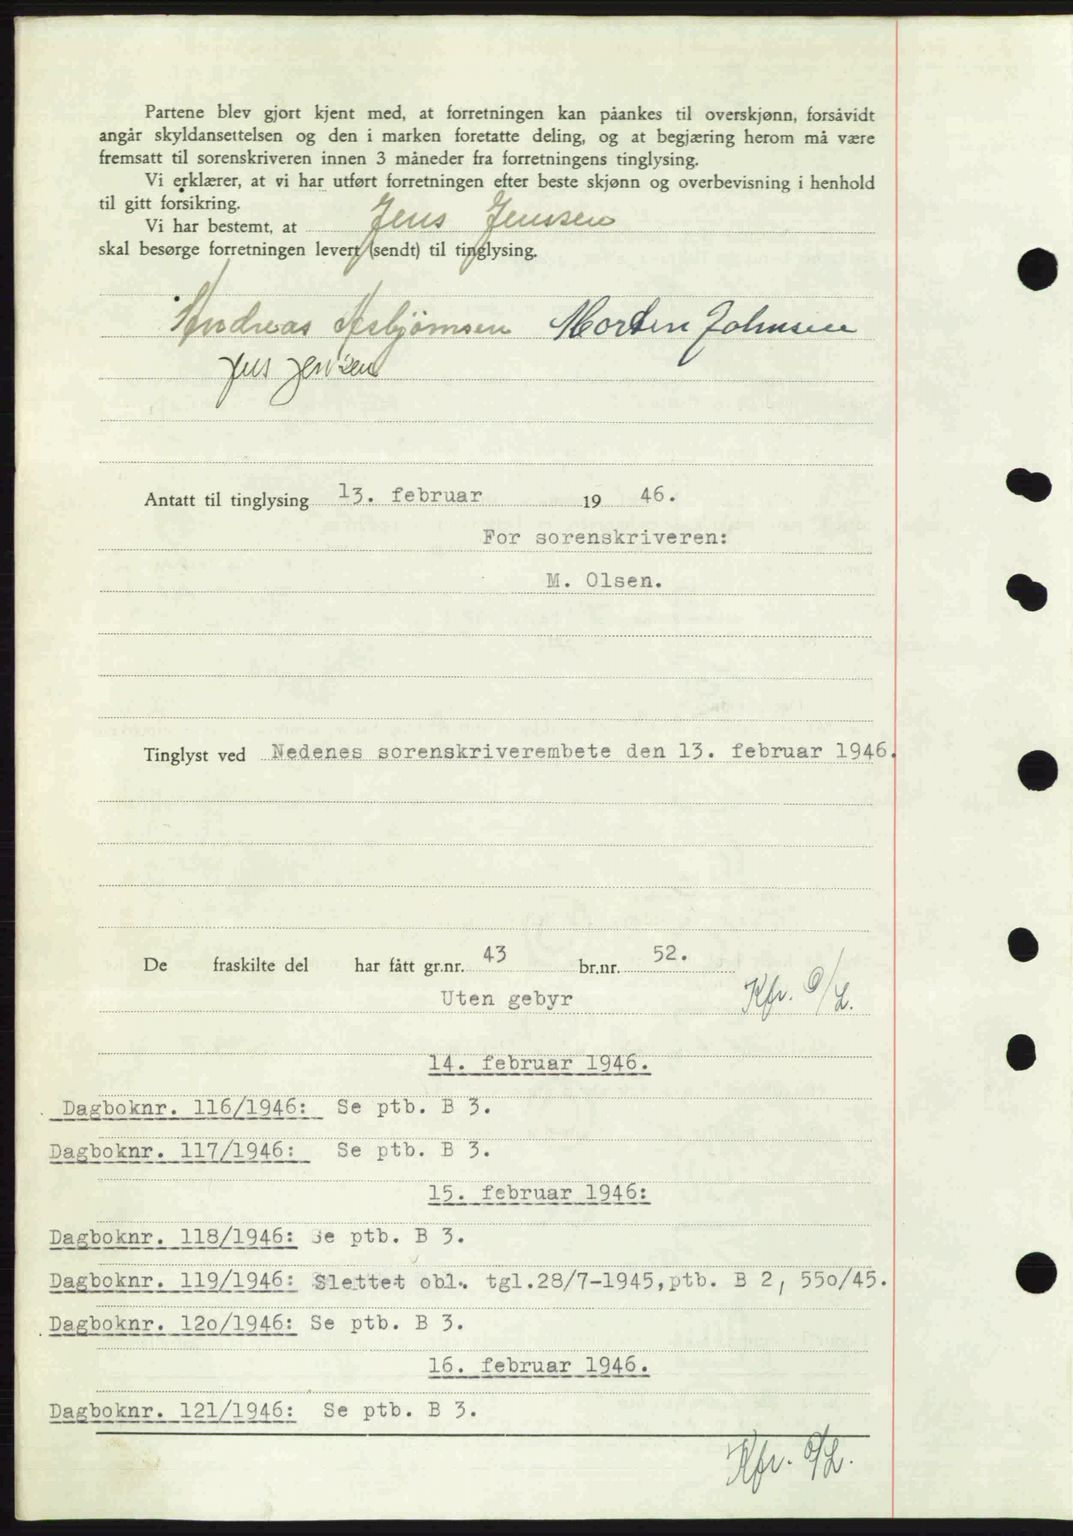 Partene blev gjort kjent med, at forretningen kan påankes til overskjønn, forsåvidt
angår skyldansettelsen og den i marken foretatte deling, og at begjæring herom må være
fremsatt til sorenskriveren innen 3 måneder fra forretningens tinglysing.
Vi erklærer, at vi har utført forretningen efter beste skjønn og overbevisning i henhold
til gitt forsikring.
Vi har bestemt, at Jens Jenssen
skal besørge forretningen levert (sendt) til tinglysing.
Andreas Asbjørnsen Morten Johnsen
Jens Jenssen
Antatt til tinglysing 13. februar 19 46.
For sorenskriveren:
M. Olsen.
Tinglyst ved Nedenes sorenskriverembete den 13. februar 1946.
De fraskilte del har fått gr.nr. 43 br.nr. 52.
Uten gebyr Kfr.
14. februar 1946.
Dagboknr. 116/1946: Se ptb. B 3.
Dagboknr. 117/1946: Se ptb. B 3.
15. februar 1946:
Dagboknr. 118/1946: Se ptb. B 3.
Dagboknr. 119/1946: Slettet obl. tgl.28/7-1945,ptb. B 2, 55o/45.
Dagboknr. 12o/1946: Se ptb. B 3.
16. februar 1946.
Dagboknr. 121/1946: Se ptb. B 3.
Kfr.